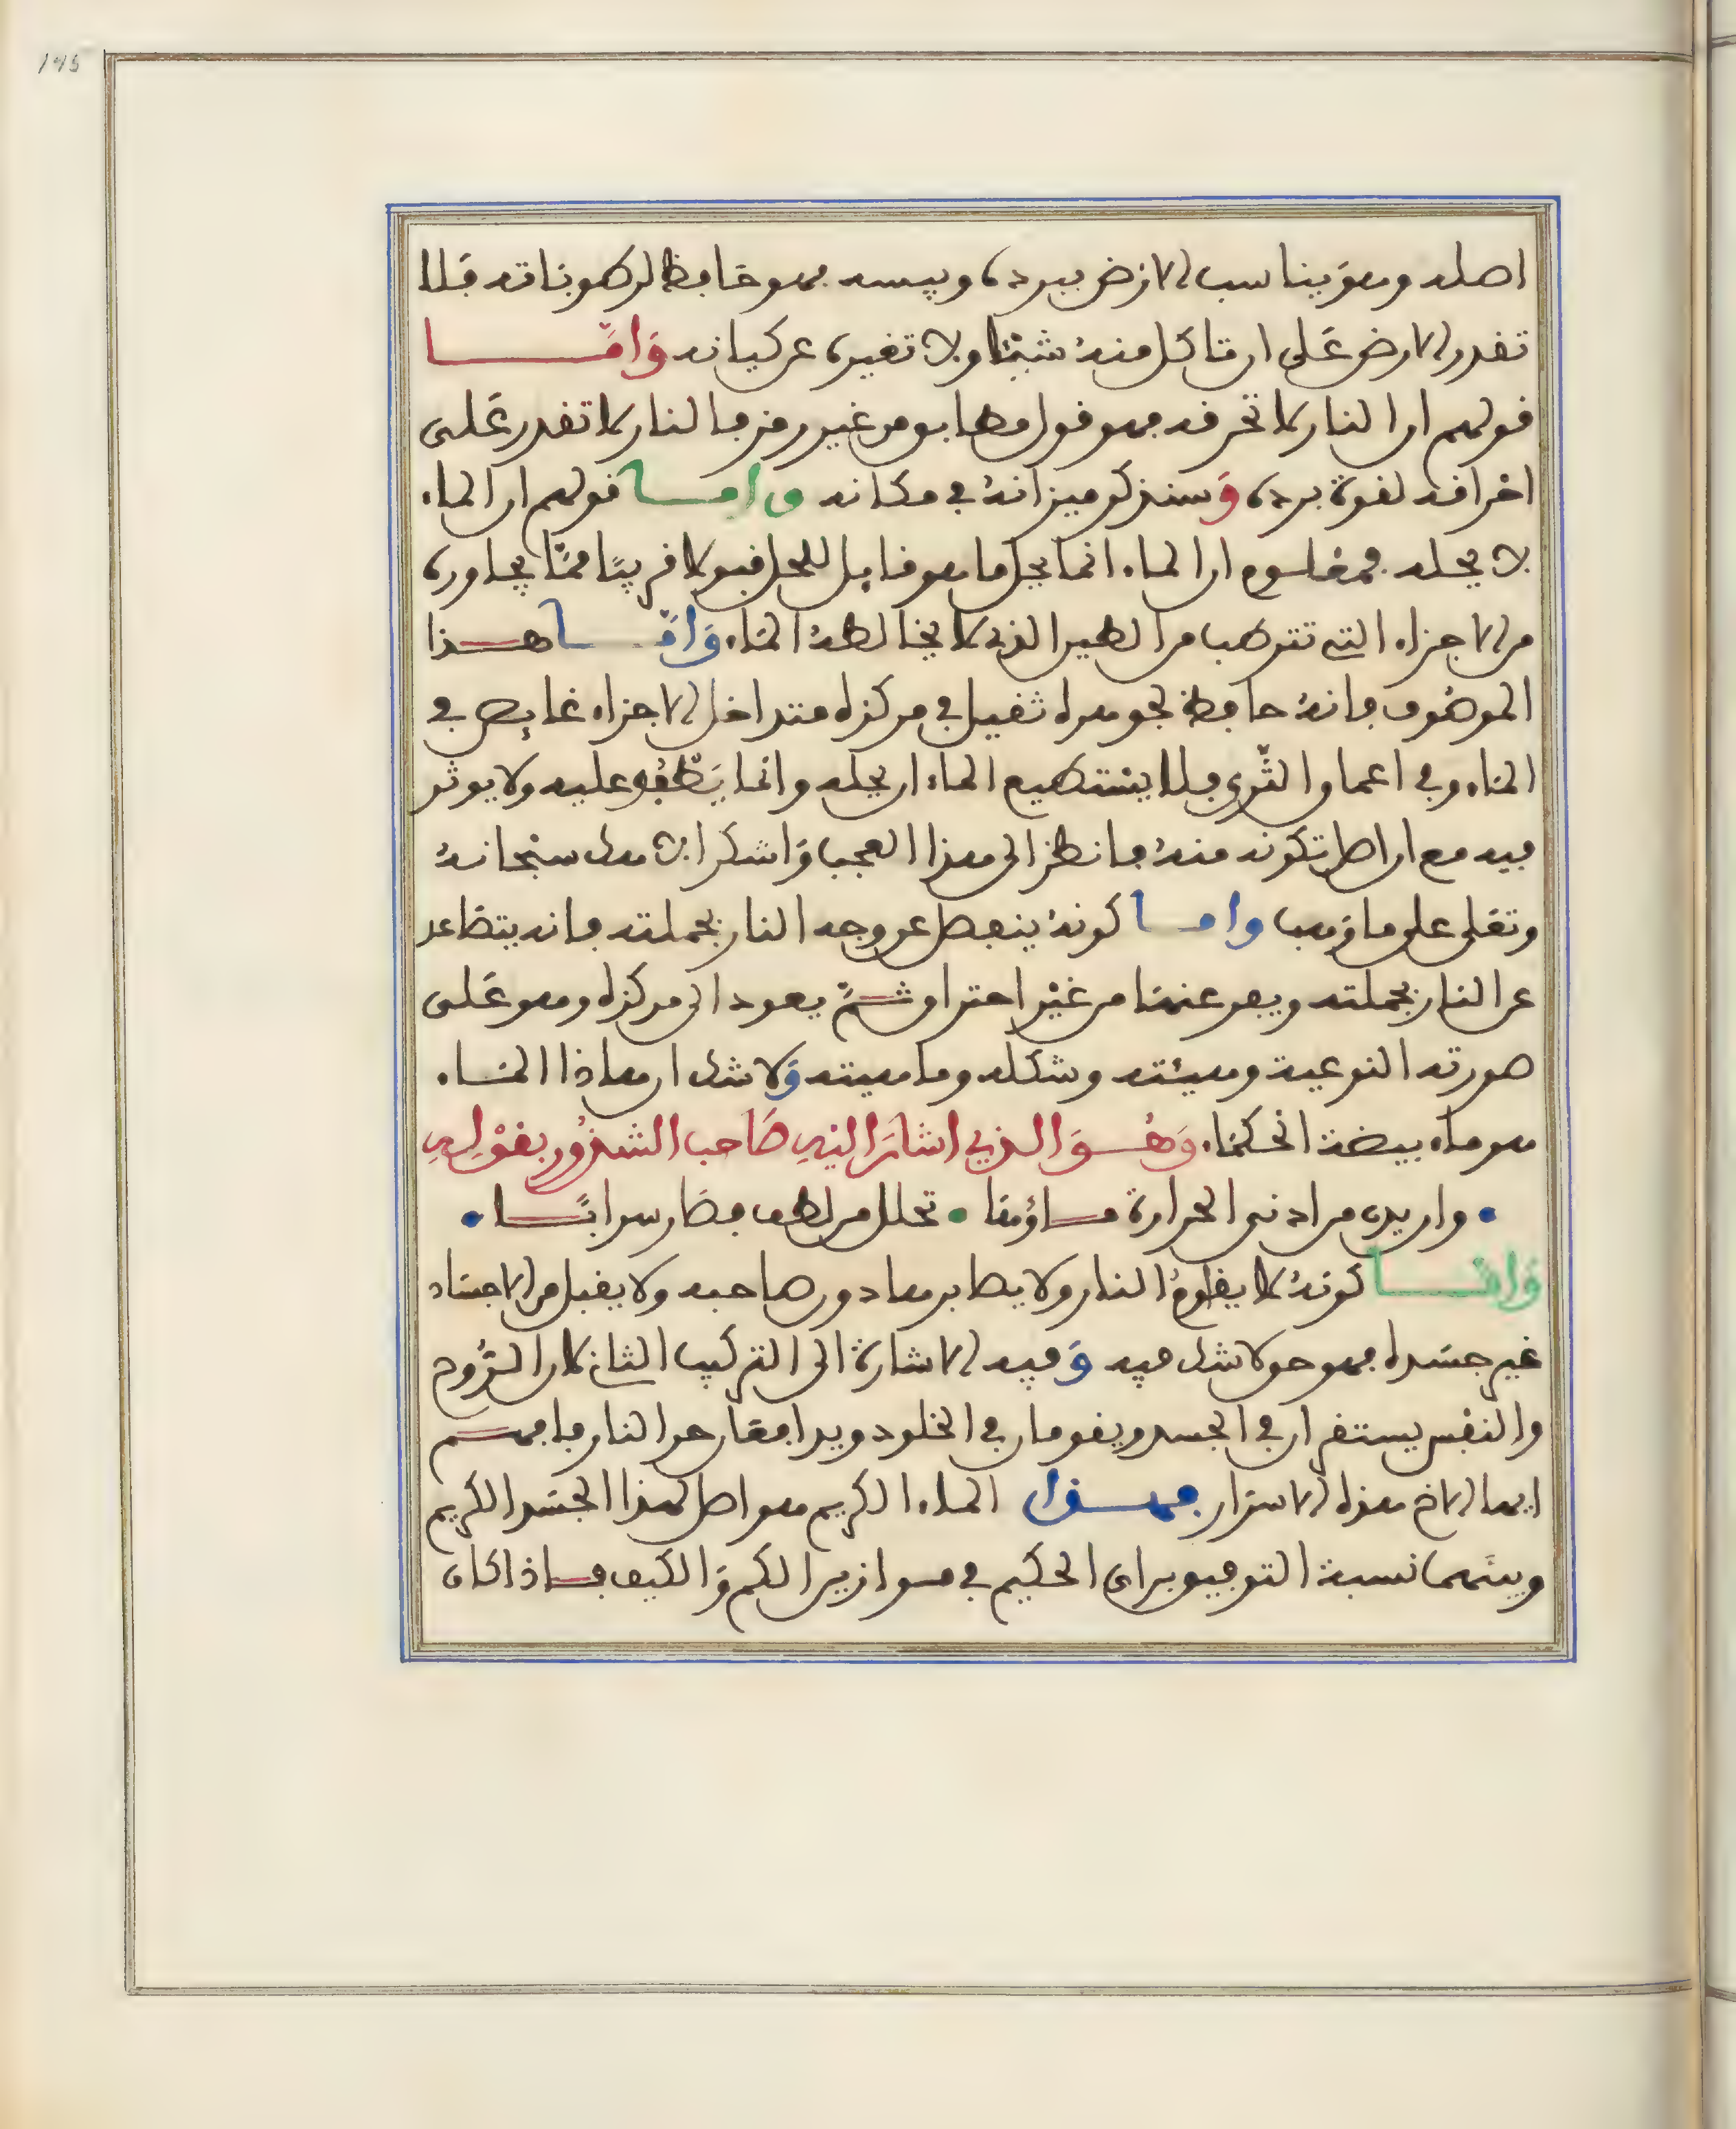 195
اصله وهو يناسب الارض ببرده ويبسه فهو حافظ لرطوباته فلا
تقدر الارض على ان تاكل منه شيئا ولا تغيره عن كيانه وامــا
قولهم ان النار لا تحرقه فهو قول مطابق من غير رمز فالنار لا تقدر على
احراقه لقوة برده وسنذكر ميزانه في مكانه وامــا قولهم ان الماء
لا يحله فمعلوم ان الماء انما يحل ما هو قابل للحل قبولا قريبا مما يجاوره
من الاجزاء التي تترطب من الطين الذي لا يخالطه الماء وامــا هــذا
الموصوف فانه حافظ لجوهره ثقيل في مركزه متداخل الاجزاء غايص في
الماء وفي اعماق الثرى فلا يستطيع الماء ان يحله وانما يطفو عليه ولا يوثر
فيه مع ان اصل تكونه منه فانظر الى هذا العجب واشكر الله سبحانه
وتعلى على ما وهب وامــا كونه ينفصل عن وجه النار بجملته فانه يتصاعد
عن النار بجملته ويفر عنها من غير احتراق ثــم يعود الى مركزه وهو على
صورته النوعية وهيئته وشكله وماهيته ولا شك ان هاذا المــاء
هو ماء بيضة الحكماء وهــو الذي اشار اليه صاحب الشذور بقوله
• وان يدن من ادنى الحرارة مــاؤها • تحلل من لطف فصار سرابــا •
وامــا كونه لا يقاوم النار ولا يصابرها دون صاحبه ولا يقبل من الاجساد
غير جسده فهو حق لا شك فيه وفيه الاشارة الى التركيب الثاني لان الروح
والنفس يستقران في الجسد ويقومان في الخلود ويدافعان حر النار فافهــم
ايها الاخ هذه الاسرار فهــذا الماء الكريم هو اصل لهذا الجسد الكريم
وبينهما نسبة التوفيق براي الحكيم في مــوازين الكم والكيف فــاذا كان